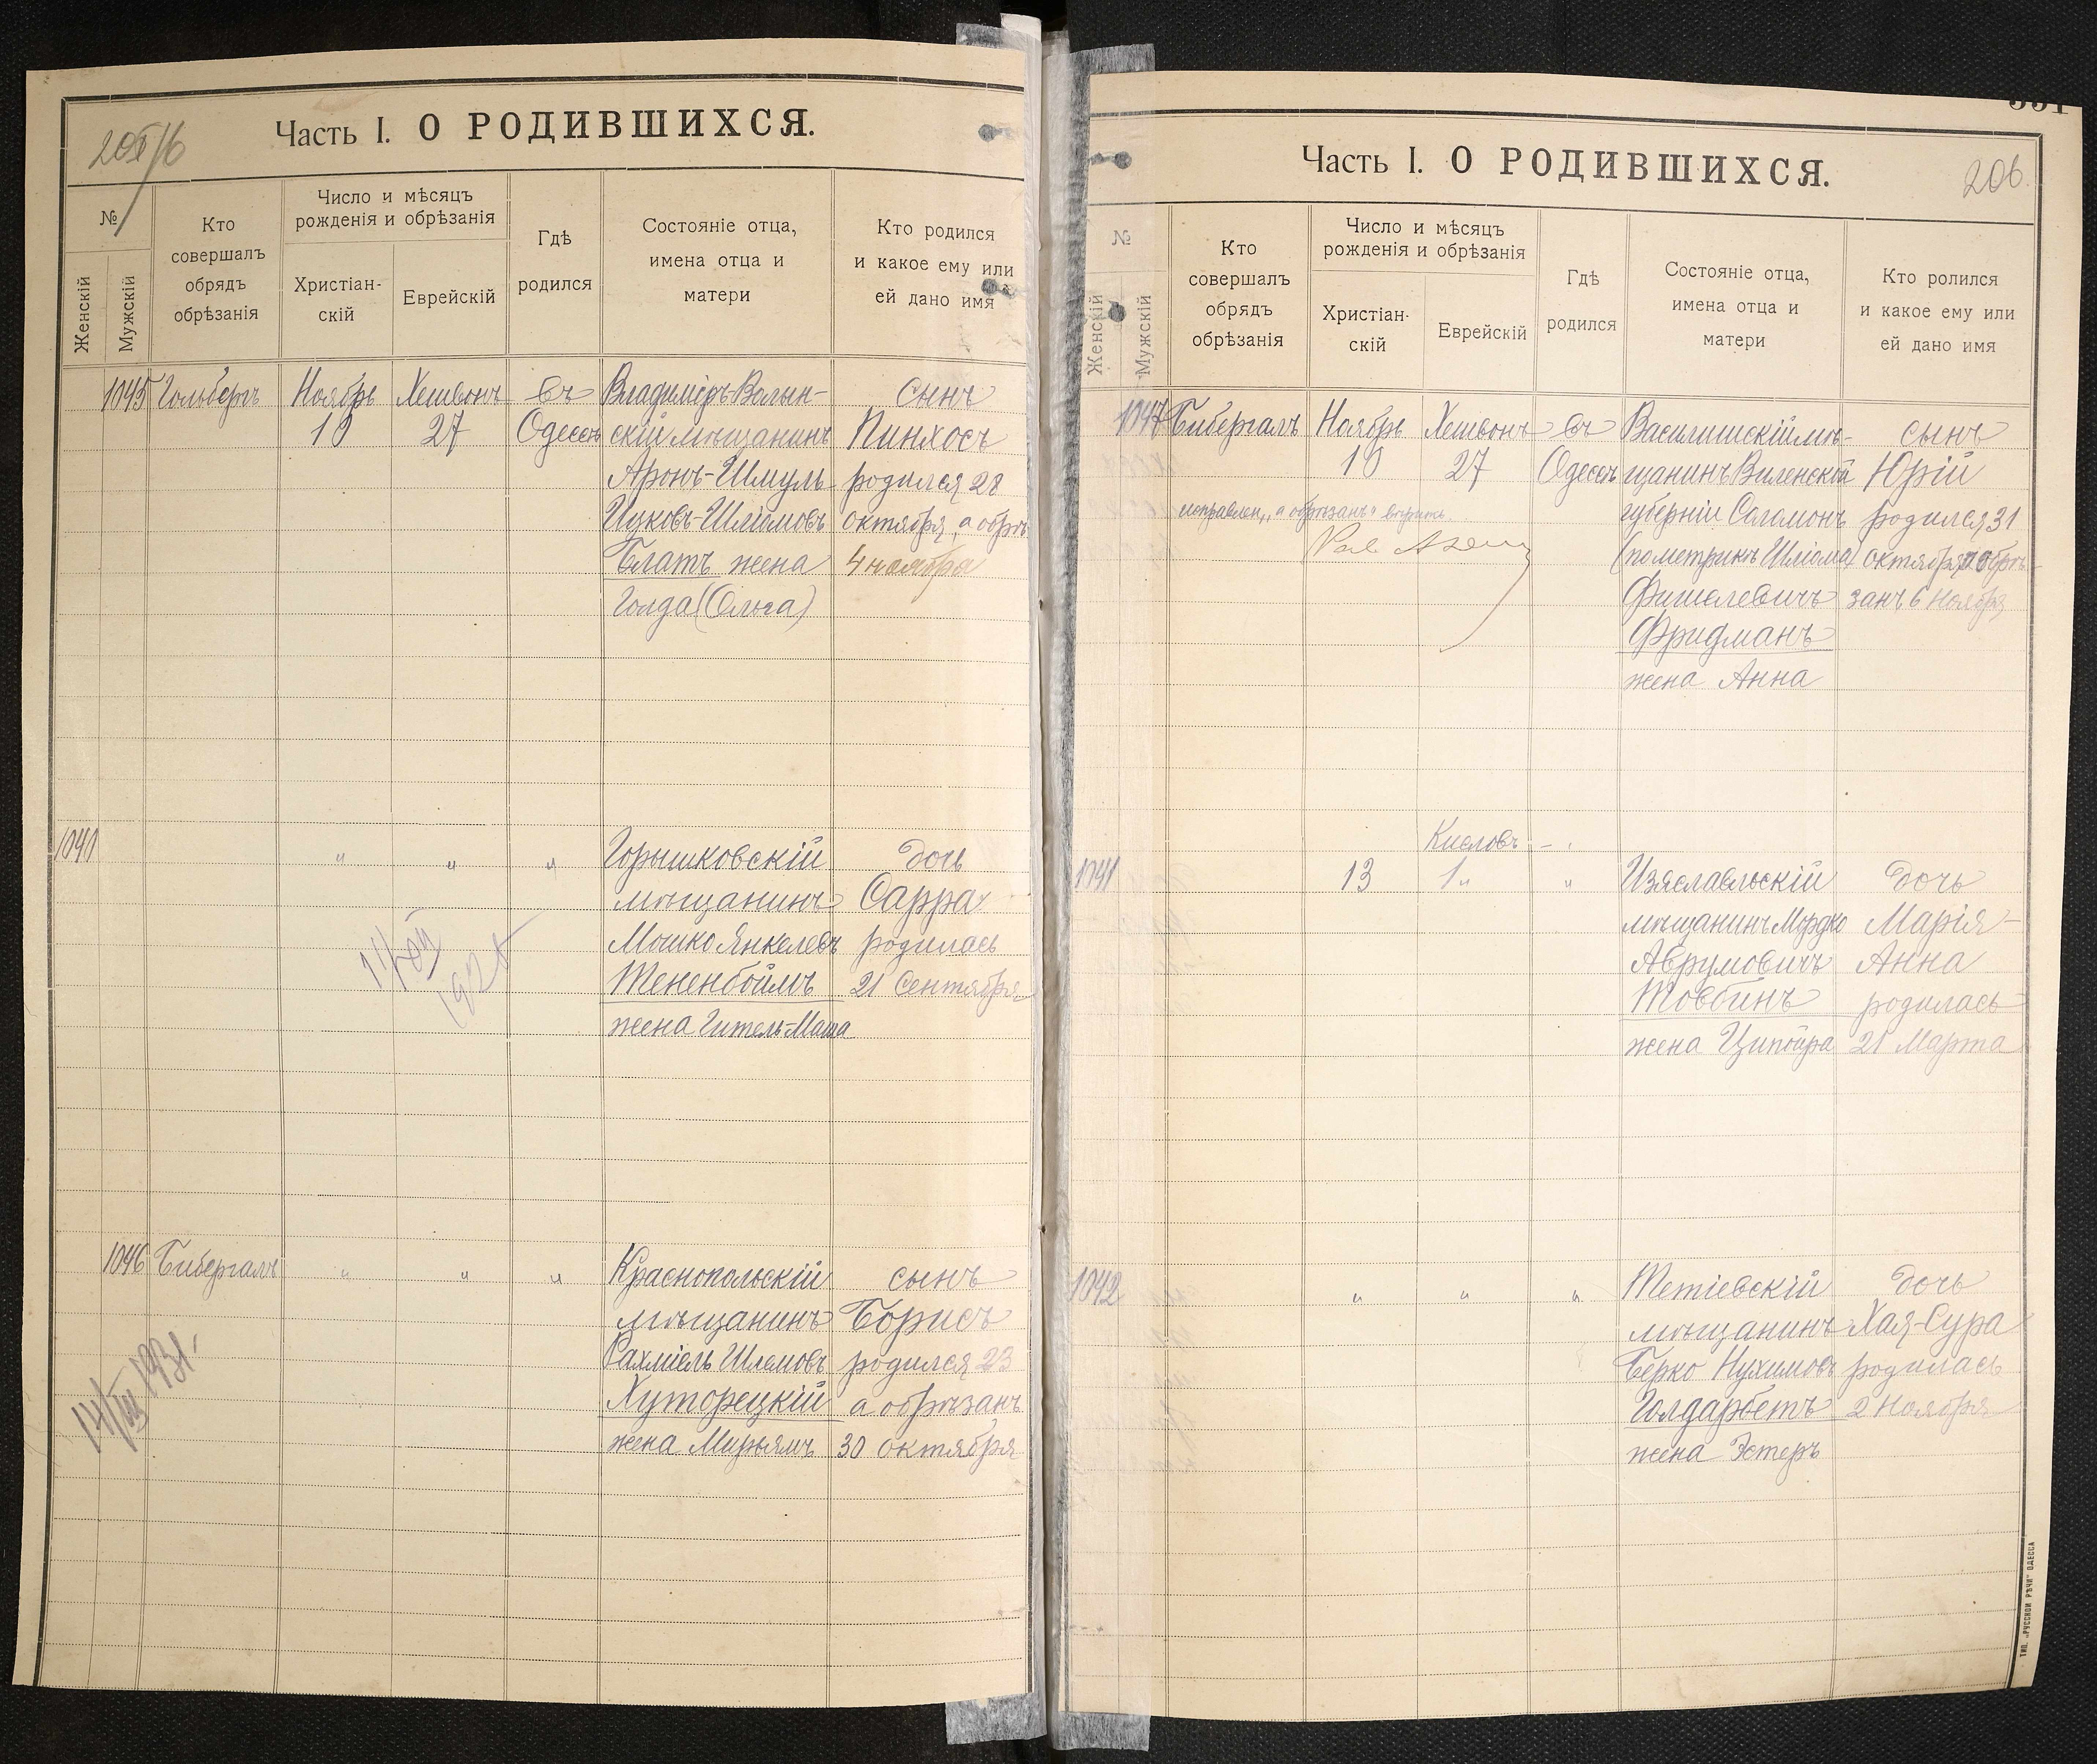 Часть I. О РОДИВШИХСЯ.
№
Женскій
Мужскій
Кто
совершалъ
обрядъ
обрѣзанія
Число и мѣсяцъ
рожденія и обрѣзанія
Христіан-
скій
Еврейскій
Гдѣ
родился
Состояніе отца,
имена отца и
матери
Кто родился
и какое ему или
ей дано имя
1045 Гольбергъ
Ноябрь
10
Хешвонъ
27
въ
Одессѣ
Владимиръ-Волын-
скій мѣщанинъ
Аронъ-Шмуль
Ицковъ-Шліомовъ
Блатъ жена
Голда (Ольга)
сынъ
Пинхосъ
родился 28
октября, а обрѣ
4 ноября
1040
"
"
"
Горышковскій
мѣщанинъ
Мошко Янкелевъ
Тененбоймъ
жена Гитель-Маша
дочь
Сарра
родилась
21 Сентября
1925
1046 Бибергалъ
"
"
"
Краснопольскій
мѣщанинъ
Рахміель Шлемовъ
Хуторецкій
жена Мирьямъ
сынъ
Борисъ
родился 23
а обрѣзанъ
30 октября
14/III 1931.
Часть I. О РОДИВШИХСЯ.
206.
№
Женскій
Мужскій
Кто
совершалъ
обрядъ
обрѣзанія
Число и мѣсяцъ
рожденія и обрѣзанія
Христіан-
скій
Еврейскій
Гдѣ
родился
Состояніе отца,
имена отца и
матери
Кто ролился
и какое ему или
ей дано имя
1047 Бибергалъ
Ноябрь
10
Хешвонъ
27
въ
Одессѣ
Василишскій мѣ-
щанинъ Виленской
губерніи Соломонъ
(по метрикѣ Шліома)
Фишелевичъ
Фридманъ
жена Анна
сынъ
Юрій
родился 31
октября, а обрѣ-
занъ 6 Ноября
исправлен. „а обрѣзанъ" вѣрно
1041
13
Кислевъ
1
"
Изяславльскій
мѣщанинъ Мордко
Аврумовичъ
Товбинъ
жена Ципойра
дочь
Марія-
Анна
родилась
21 Марта
1042
"
"
"
Тетіевскій
мѣщанинъ
Берко Нухимовъ
Голдарбетъ
жена Эстеръ
дочь
Хая-Сура
родилась
2 Ноября
ТИП. „РУССКОЙ РѢЧИ" ОДЕССА